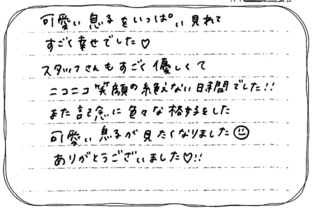 可愛い息子をいっぱい見れて
すごく幸せでした♡
スタッフさんもすごく優しくて
ニコニコ笑顔の絶えない日時間でした!!
また記念に色々な格好をした
可愛い息子が見たくなりました☺
ありがとうございました♡!!